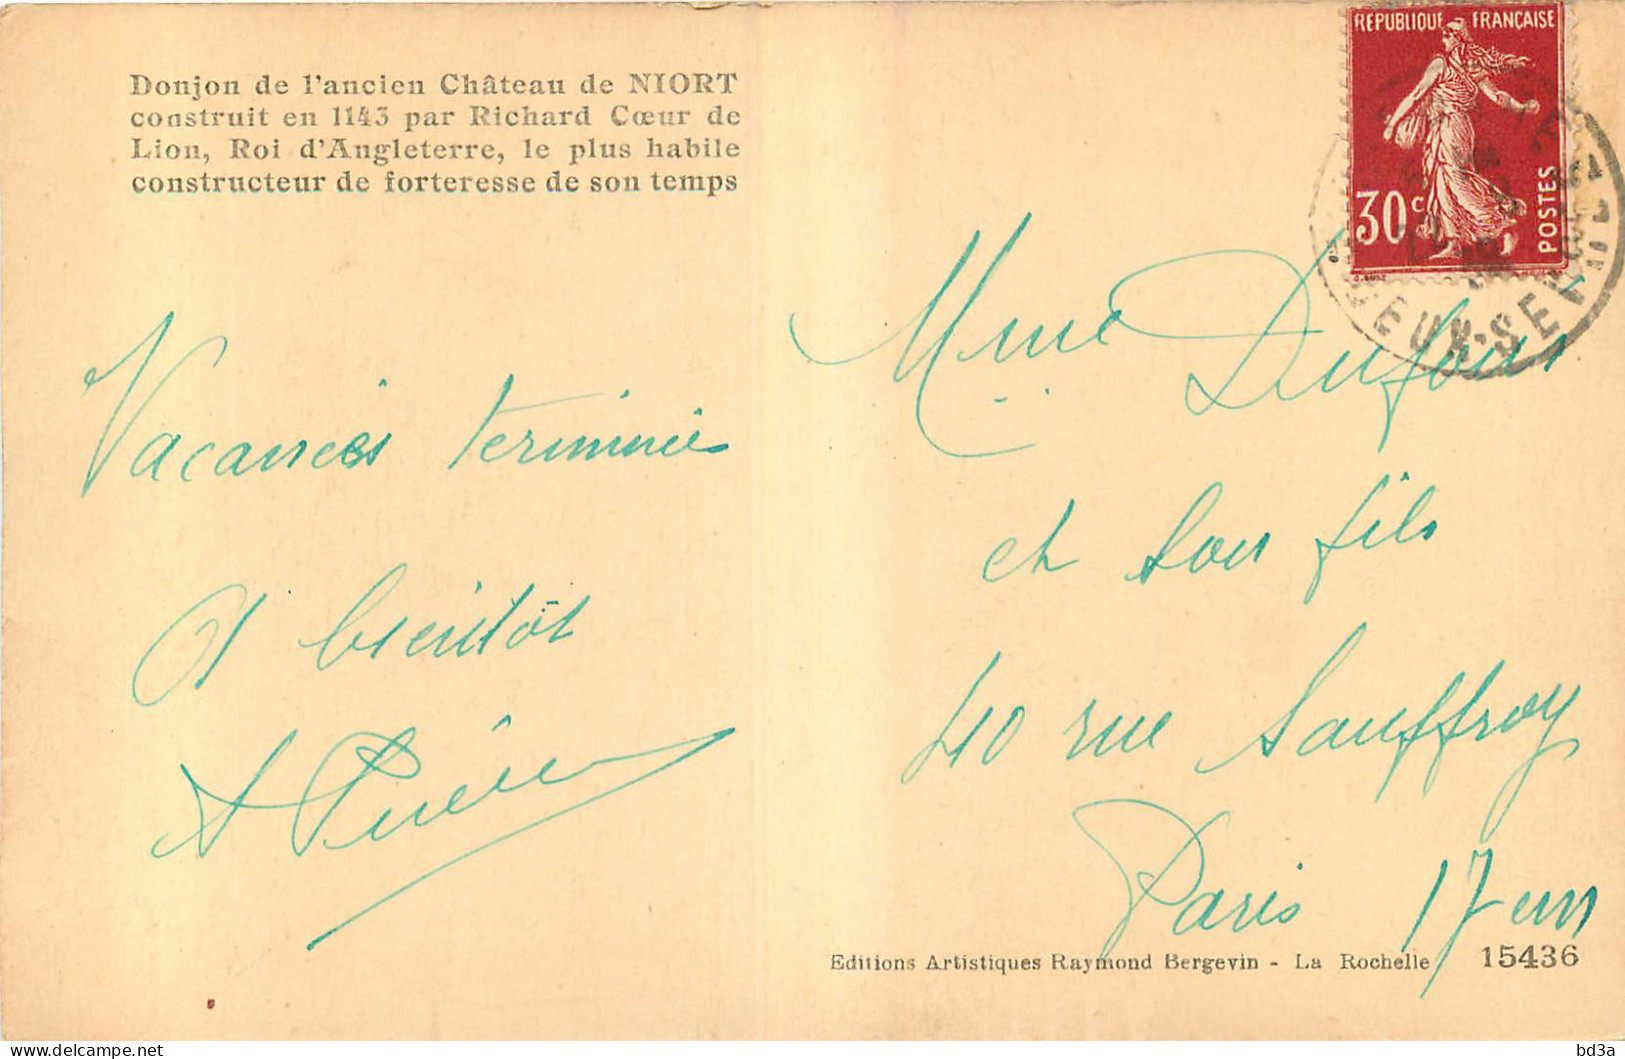 Donjon de l'ancien Château de NIORT
construit en 1143 par Richard Cœur de
Lion, Roi d'Angleterre, le plus habile
constructeur de forteresse de son temps
REPUBLIQUE FRANÇAISE
30c
POSTES
DEUX-SEVRES
Vacances terminées
A bientôt
Mme Dufour
et son fils
40 rue Sauffroy
Paris 17em
Editions Artistiques Raymond Bergevin - La Rochelle 15436
bd3a